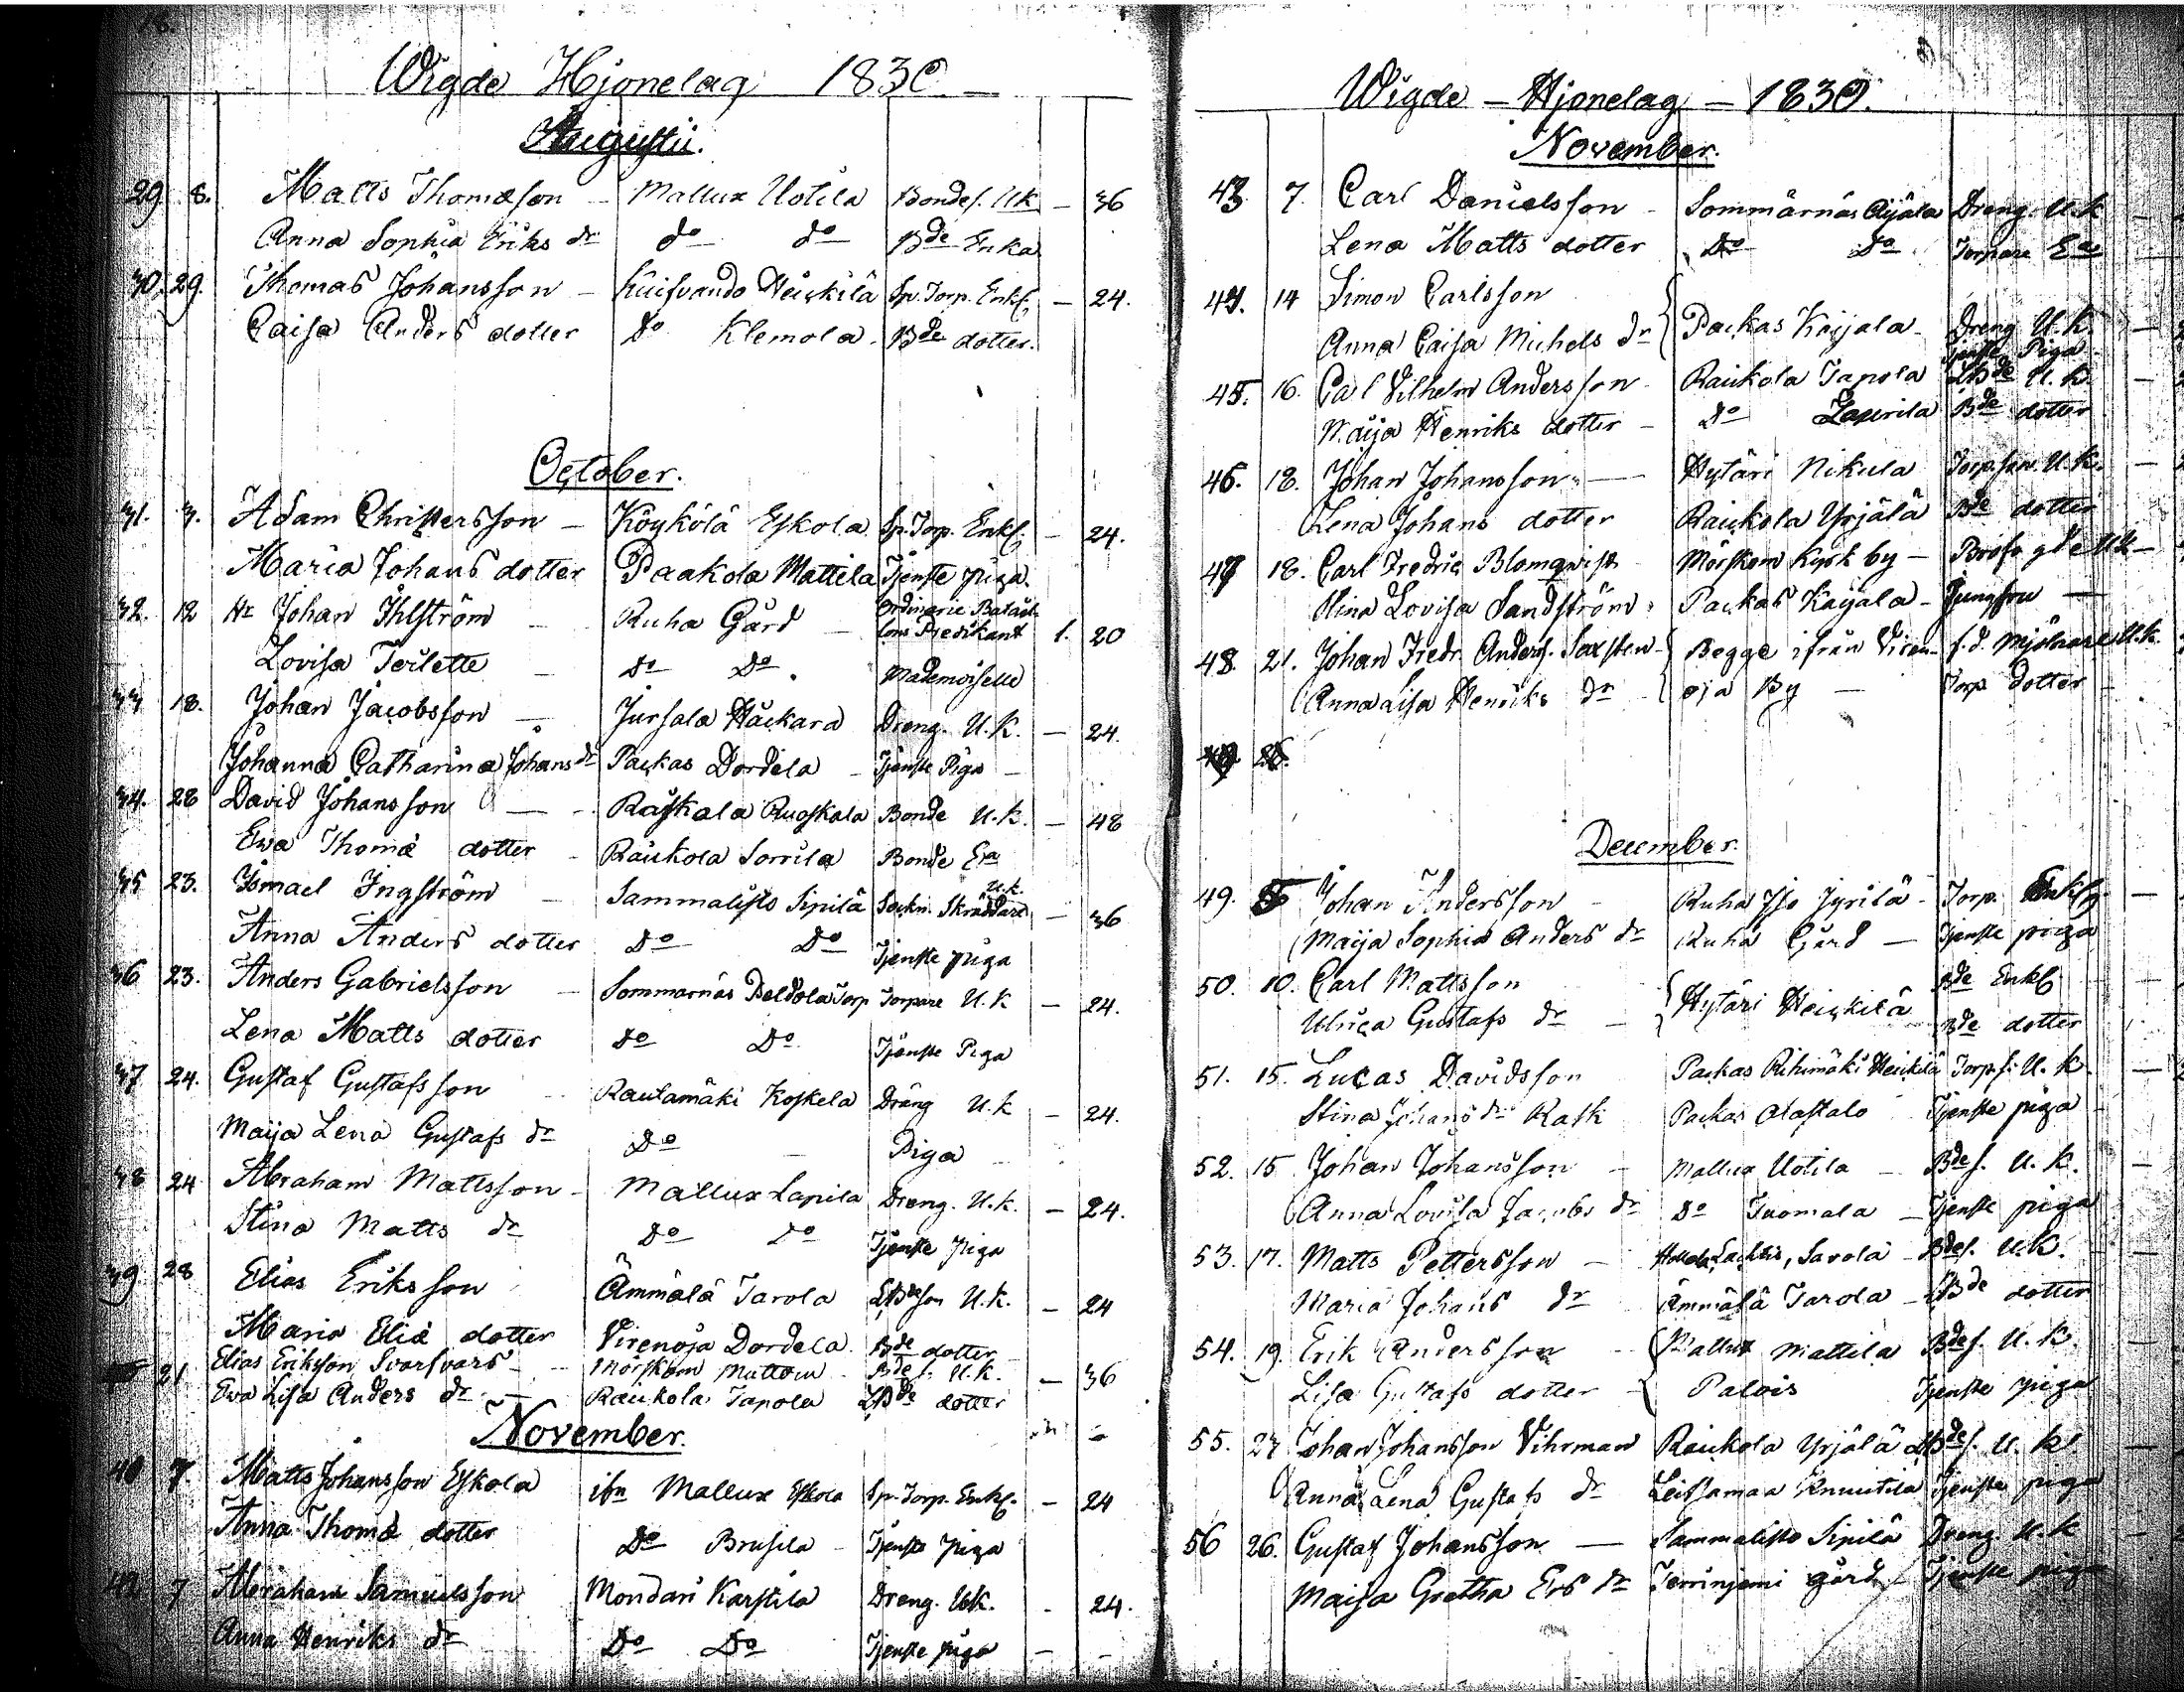 Wigde Hjonelag 1830.
Augustii.
29 8. Matts Thomasson – Mallux Uotila Bondes. UK – 36
Anna Sophia Eriks dr do do Bde Enka
30. 29. Thomas Johansson – Kuifvando Heickilä Sp. Torp. Enkl. – 24.
Caisa Anders dotter Do Klemola – Bde dotter.
October.
31. 3. Adam Christersson – Köykölä Eskola Sp. Torp. Enkl. – 24.
Maria Johans dotter Paakola Mattila Tjenste piga.
32. 12 Hr Johan Ihlström – Ruha Gård – Ordinarie Batail-
lons Predikant 1. 20
Lovisa Terlette – Do Do. Mademoiselle
33 18. Johan Jacobsson – Jursala Hackara Dreng. U.K. – 24.
Johanna Catharina Johans dr Packas Dordela – Tjenste Piga –
34. 28 David Johansson – Raskala Ruoskala Bonde U.K. – 48
Ewa Thomæ dotter – Raukola Sorrila Bonde Ea
35 23. Ismael Ingström – Sammalisto Sipilä Sockn. Skräddare U.K. – 36
Anna Anders dotter Do Do Tjenste piga
36 23. Anders Gabrielsson – Sommarnäs Peldola Torp Torpare U.K – 24.
Lena Matts dotter Do Do Tjenste Piga
37 24. Gustaf Gustafsson – Rautamäki Koskela Dräng U.K – 24.
Maija Lena Gustafs dr Do – Piga
38 24 Abraham Mattsson – Mallux Lapila Dreng. U.K. – 24.
Stina Matts dr Do Do Tjenste piga
39 28 Elias Eriksson Ämmälä Tarola LBdeson U.K. – 24
Maria Eliæ dotter Virenoja Dordela Bde dotter
21 Elias Eriksson Svarfvars – Mörskom Mattom Bde s. U.K. – 36
Ewa Lisa Anders dr – Raukola Tapola LBde dotter
November.
7. Matts Johansson Eskola ifrn Mallux Eskola Sp. Torp. Enkl. – 24
Anna Thomæ dotter Do Brusila – Tjenste piga
7 Abraham Samuelsson Mondari Karstila Dreng. UK. – 24.
Anna Henriks dr Do Do Tjenste piga –
Wigde – Hjonelag – 1830.
November.
43 7. Carl Danielsson – Sommarnäs Äijälä Dreng. U.K
Lena Matts dotter Do Do Torpare Ea
44. 14 Simon Carlsson
Packas Kaijala – Dreng U.K. –
Anna Caisa Michels dr Tjenste Piga
45. 16. Carl Vilhelm Andersson – Raukola Tapola LBde U.K. –
Maija Henriks dotter – Do Laurila Bde dotter
46. 18. Johan Johansson – Hytäri Nikula Torp. son. U.K. –
Lena Johans dotter Raukola Yrjälä Bde dotter
47 18. Carl Fredric Blomqwist Mörskom Kyrk by –
Lovisa Sandström Packas Kaijala – Jungfru –
48. 21. Johan Fredr. Anderss. Saxsten Begge ifrån Viren- f.d. mjölnare U.K.
Anna Lisa Henriks dr – oja By – Torp dotter –
December.
49. Johan Andersson – Ruha Iso Jyrilä – Torp. Enkl. –
Maija Sophia Anders dr Ruha Gård – Tjenste piga
50. 10. Carl Mattsson Bde Enkl.
Hytäri Heickilä
Ulrica Gustafs dr – Bde dotter
51. 15. Lucas Davidsson Packas Rihimäki Heickilä Torp. s. U.K. –
Stina Johans dr Rask Packas Alastalo Tjenste piga
52. 15 Johan Johansson – Mallux Uotila – Bde s. U.K. –
Anna Lovisa Jacobs dr Do Tuomala – Tjenste piga
53. 17. Matts Pettersson – Lachtis, Sarola – Bdes. U.K.
Maria Johans dr Ämmälä Tarola – LBde dotter
54. 19. Erik Andersson Mallux Mattila Bdes. U.K.
Lisa Gustafs dotter – Palois Tjenste piga
55. 27 Johan Johansson Vihrman Raukola Yrjälä LBdes. U.K. –
Anna Lena Gustafs dr Leitsamaa Knuutila Tjenste piga
56 26. Gustaf Johansson – Sammalisto Sipilä Dreng U.K –
Maija Gretha Ers dr Terrinjemi gård Tjenste piga